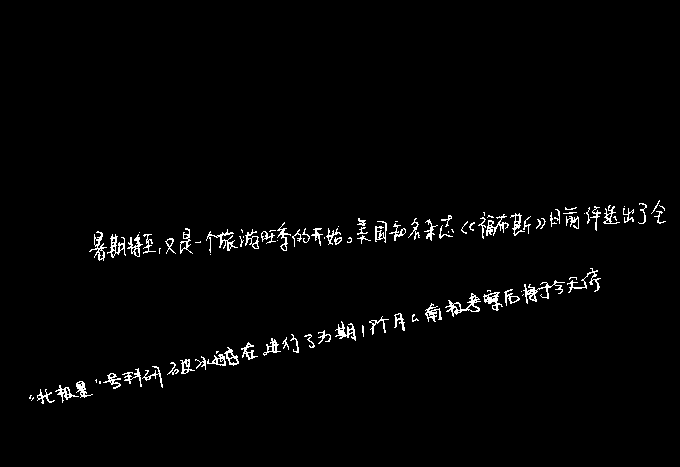 暑期将至,又是一个旅游旺季的开始。美国知名杂志《福布斯》日前评选出了全
“北极星”号科研破冰船在进行了为期17个月的南极考察后将于今天停